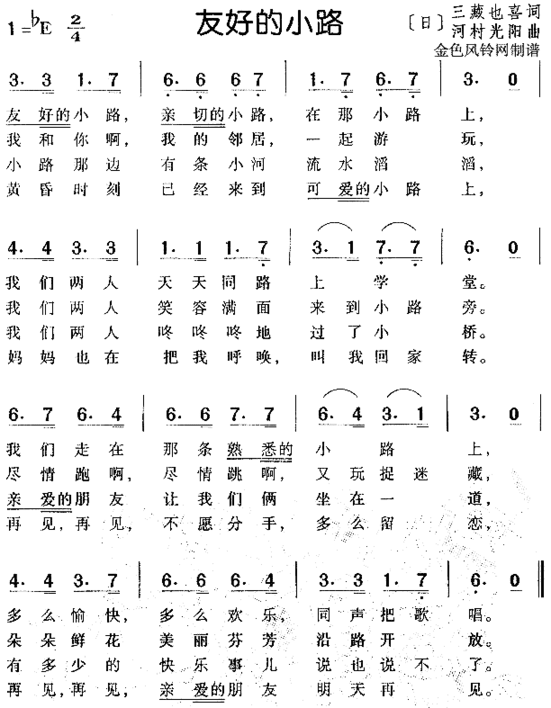 友好的小路
1=♭E 2/4
〔日〕三藏也喜词
河村光阳曲
金色风铃网制谱
3. 3 1. 7 | 6. 6 6 7 | 1. 7 6. 7 | 3. 0 |
友好的小路,亲切的小路,在那小路上,
我和你啊,我的邻居,一起游玩,
小路那边有条小河流水滔滔,
黄昏时刻已经来到可爱的小路上,
4. 4 3. 3 | 1. 1 1. 7 | 3. 1 7. 7 | 6. 0 |
我们两人天天同路上学堂。
我们两人笑容满面来到小路旁。
我们两人咚咚咚地过了小桥。
妈妈也在把我呼唤,叫我回家转。
6. 7 6. 4 | 6. 6 7. 7 | 6. 4 3. 1 | 3. 0 |
我们走在那条熟悉的小路上,
尽情跑啊,尽情跳啊,又玩捉迷藏,
亲爱的朋友让我们俩坐在一道,
再见,再见,不愿分手,多么留恋,
4. 4 3. 7 | 6. 6 6. 4 | 3. 3 1. 7 | 6. 0 ‖
多么愉快,多么欢乐,同声把歌唱。
朵朵鲜花美丽芬芳沿路开放。
有多少的快乐事儿说也说不了。
再见,再见,亲爱的朋友明天再见。